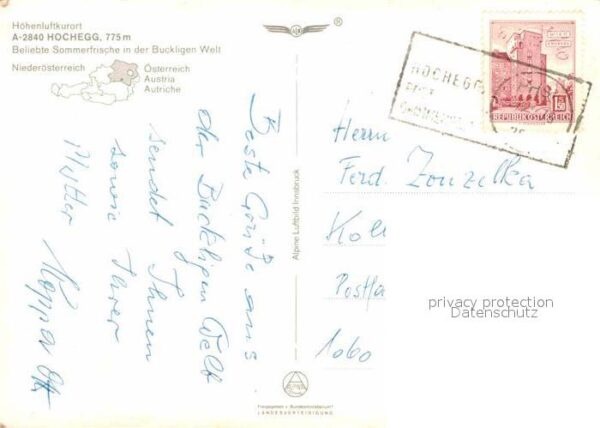 Höhenluftkurort
A-2840 HOCHEGG, 775 m
Beliebte Sommerfrische in der Buckligen Welt
Niederösterreich
Österreich
Austria
Autriche
Beste Grüße aus
der Buckligen Welt
sendet Ihnen
sowie Ihrer
Mutter
Alpine Luftbild Innsbruck
HOCHEGG
1.50
REPUBLIK ÖSTERREICH
Herrn
Ferd. Zouzelka
Koll
Postfa
1060
privacy protection
Datenschutz
Freigegeben v. Bundesministerium f.
LANDESVERTEIDIGUNG